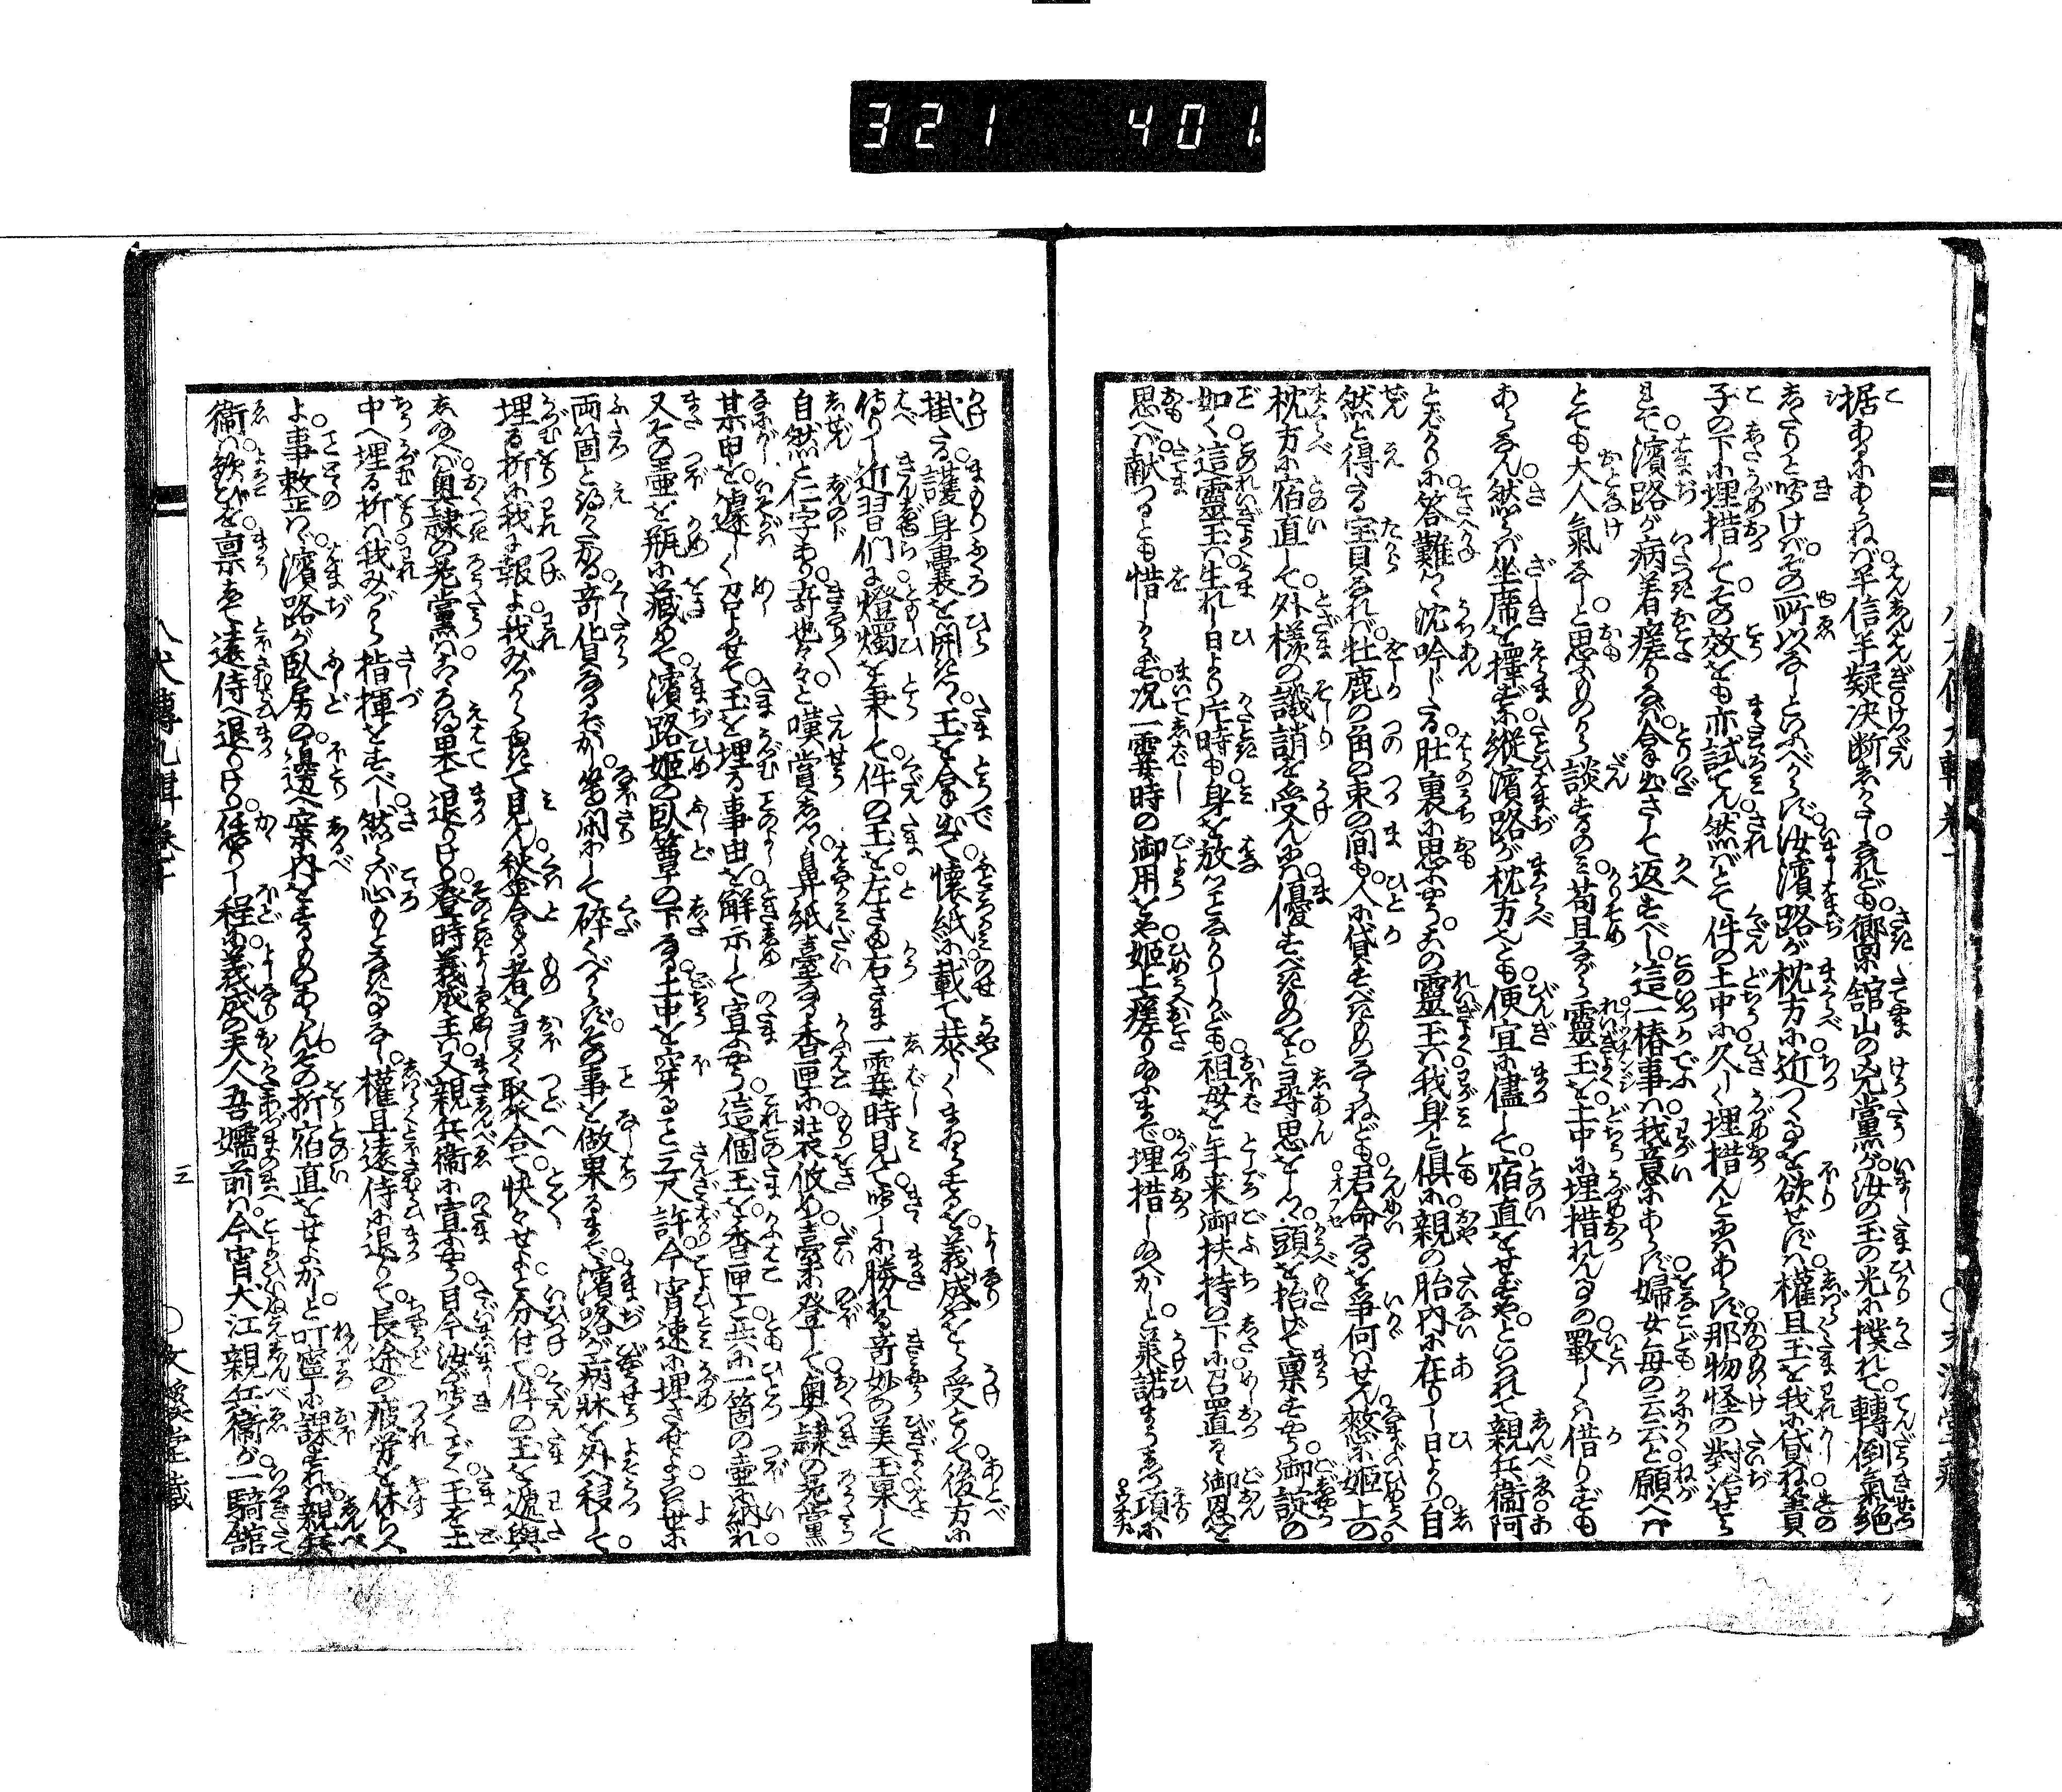 321 401
据あるにあらねば半信半疑决断しかたし。されども嚮に舘山の兇黨が。汝の玉の光に撲れて。轉倒氣絶
したりと聞けば。その所以なしといふべからず。汝濱路が枕方に近つくを欲せずは。權且玉を我に貸ね。簀
子の下に埋措して。その效をも亦試てん。然ばとて件の土中に。久しく埋措んとにはあらず。那物怪の對治せら
れて。濱路が病着瘥りなば。拿出さして返すべし。這一椿事は我意にあらず。婦女毎の云云と願へば
とても大人氣なしと思ふものから。談するのみ。苟且ながら靈玉を。土中に埋措れんの。厭しくは借りずも
あらなん。然らば坐席を擇ばず。縱濱路が枕方へとも。便宜に儘して。宿直をせずや。といはれて親兵衞阿
とばかりに。答難つゝ沈吟じたる。肚裏に思ふやう。この靈玉は我身と倶に。親の胎内に在りし日より。自
然と得たる宝貝なれば。牡鹿の角の束の間も。人に貸すべきものならねども。君命なるを爭何はせん。憖に姫上の
枕方に宿直して。外樣の譏誚を受んには。優すべきものを。と尋思をしつゝ。頭を抬げて稟すやう。御諚の
如く這靈玉は。生れし日より片時も。身を放つことなかりしかども。祖母を年来御扶持の下に召置るゝ御恩を
思へば。献つるとも惜しからず。况一霎時の御用をや。姫上瘥り給ふまで。埋措し給へかし。と承諾まうしつ項に
掛たる護身嚢を開きつゝ。玉を拿出て。懐紙に載て恭しくまゐらするを。義成やをら受とりて。後方に
侍りし近習們に。燈燭を秉して。件の玉を左さま右さま一霎時見て。聞しに勝れる奇妙の美玉。果して
自然と仁字あり。奇也々々と嘆賞しつ。鼻紙臺なる香匣に。裝攸め臺に登して。奥隷の老黨
某甲を。遽しく召よせて。玉を埋る事の由を。解示して宣ふやう。這個玉を香匣と共に。一箇の壷に納れ
又その壷を瓶に藏めて。濱路姫の臥簟の下なる。土中を穿ること三尺許。今宵速に埋させよ。世に
両箇と得がたかる。奇貨なるぞかし。等閑にして碎くべからず。その事を做果るまで。濱路が病牀を外へ移して
埋る折に我に報よ。我みづから出て見ん。秋𫝶合する者をよく取集合て快々せよと分付て。件の玉を遞與
し給へば。奥隷の老黨はこゝろ得果て退りけり。登時義成主。又親兵衞に宣ふやう。目今汝が聞くごとく玉を土
中へ埋る折は。我みづから指揮をすべし。然らば心もとなきなし。權且遠侍に退りて。長途の疲労を休らへ
よ。事整はゞ。濱路が臥房の邊へ案内をするものあらん。その折宿直をせよかし。と叮寧に課すれば親兵
衞は。歓びを稟あへて。遠侍へ退りけり。恁りし程に。義成の夫人吾嬬前は。今宵犬江親兵衞が一騎舘
八犬傳九輯巻十
三
○文溪堂藏